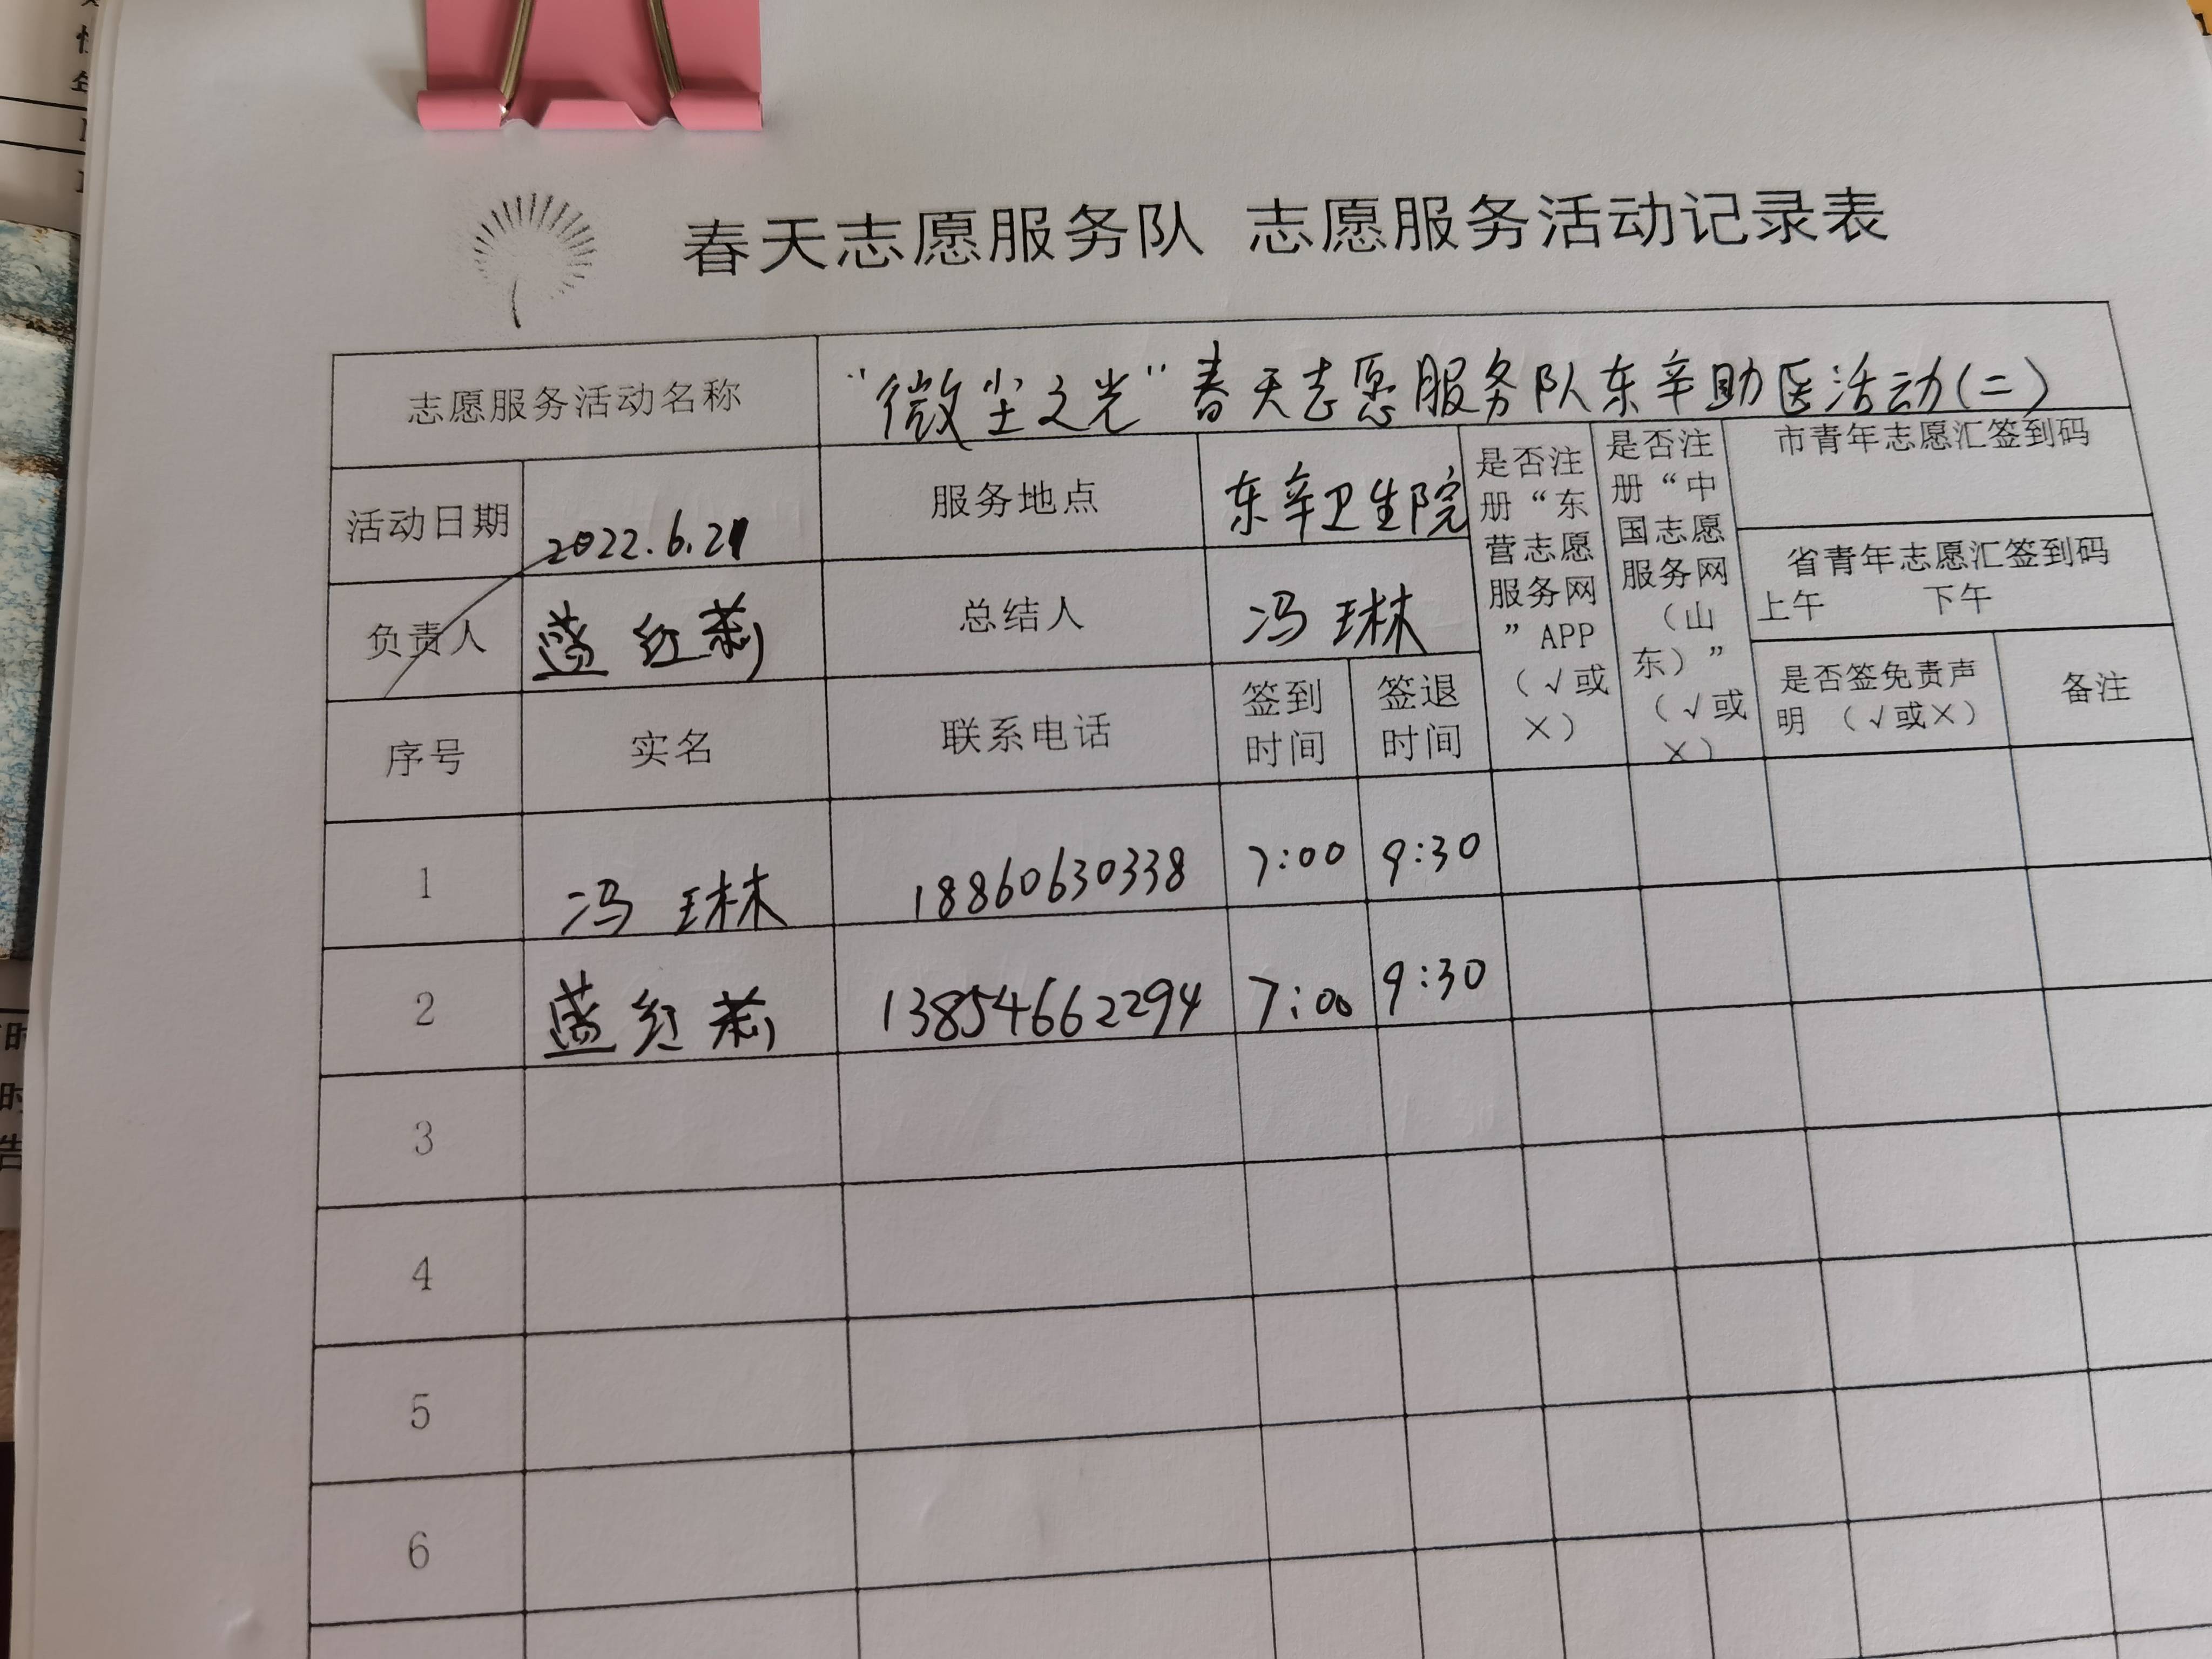 春天志愿服务队 志愿服务活动记录表
志愿服务活动名称 “微尘之光”春天志愿服务队东辛助医活动(二)
活动日期 2022.6.21 服务地点 东辛卫生院
负责人 蓝红莉 总结人 冯琳
是否注
册“东
营志愿
服务网
”APP
（√或
×）
是否注
册“中
国志愿
服务网
（山
东）”
（√或
×）
市青年志愿汇签到码
省青年志愿汇签到码
上午 下午
序号 实名 联系电话
签到
时间
签退
时间
是否签免责声
明 （√或×）
备注
1 冯琳 18860630338 7:00 9:30
2 蓝红莉 13854662294 7:00 9:30
3
4
5
6
时
时
告